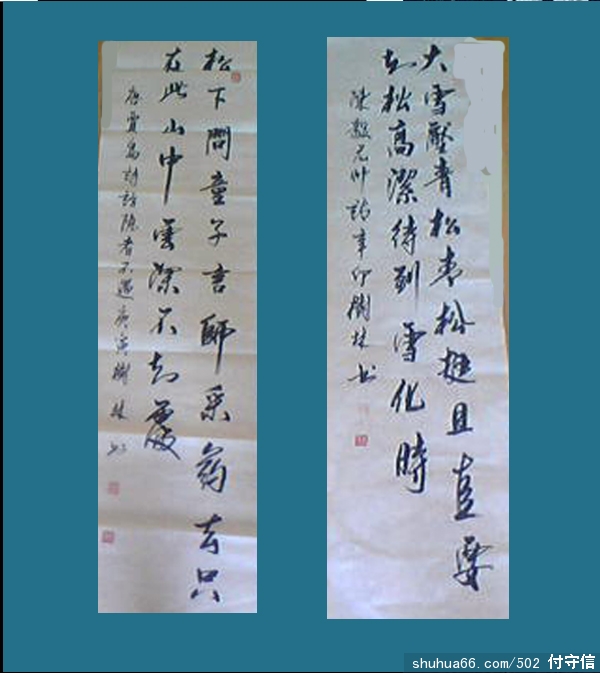 大雪壓青松青松挺且直要
知松高潔待到雪化時
陳毅元帅詩辛卯樹林书
松下問童子言師采药去只
在此山中雲深不知處
唐賈島詩訪隐者不遇庚寅樹林书
shuhua66.com/502 付守信